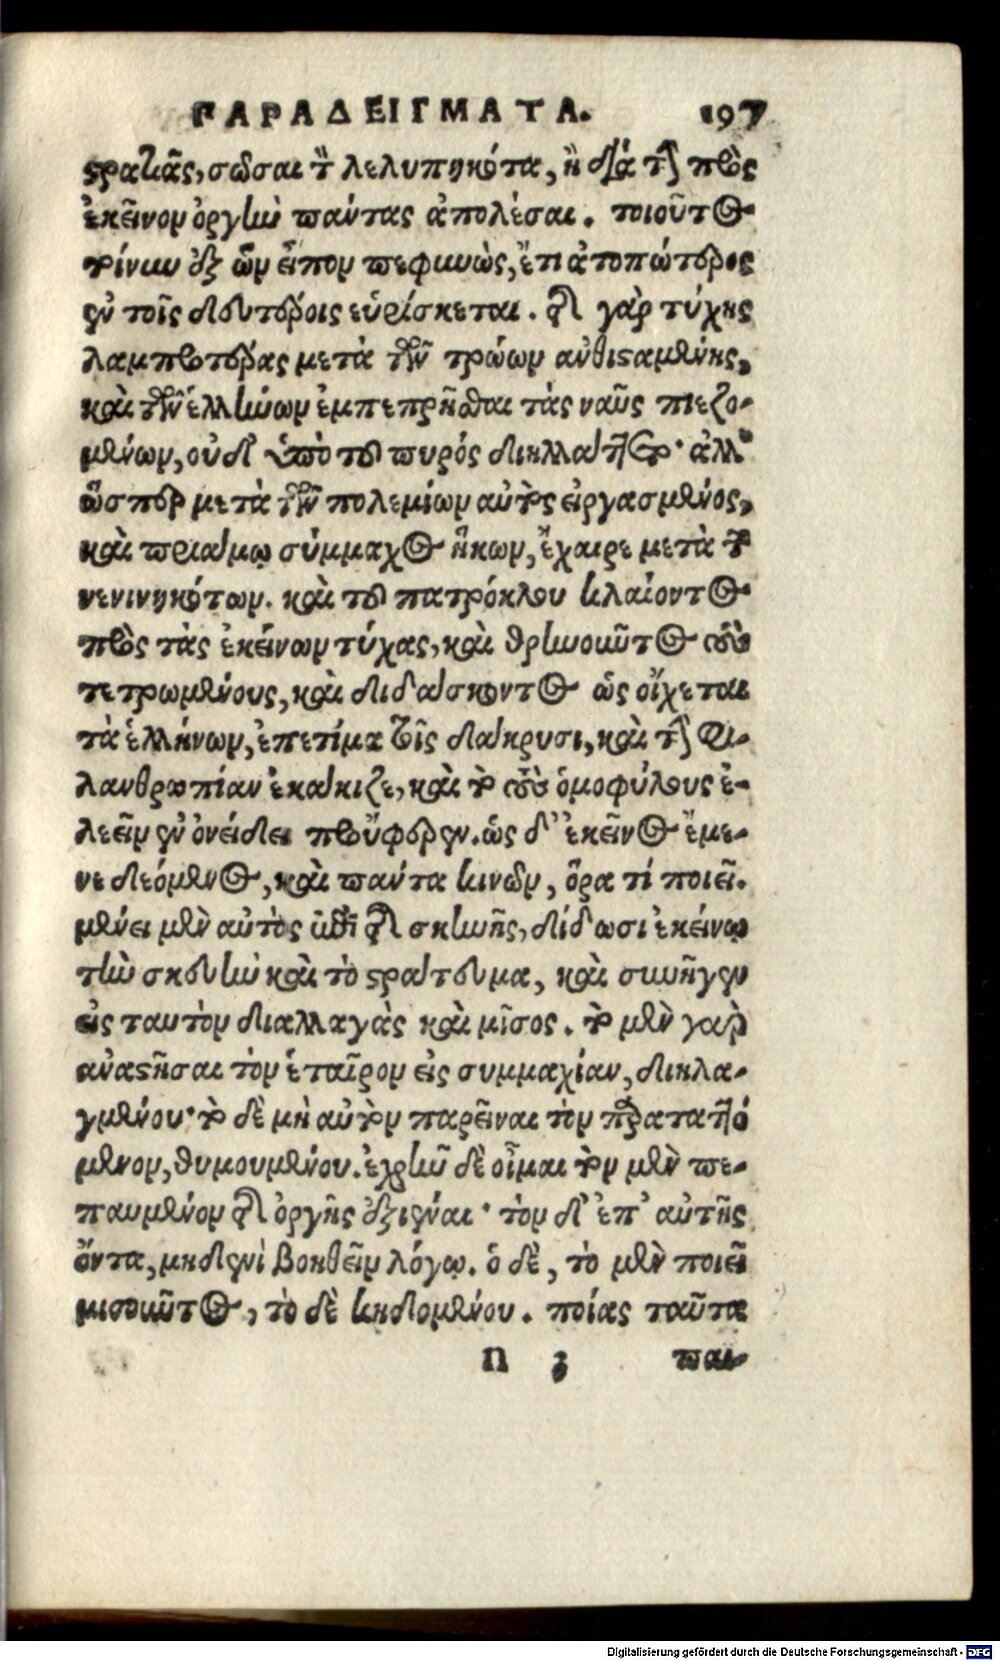 ΠΑΡΑΔΕΙΓΜΑΤΑ. 197
στρατιᾶς, σῶσαι τὸν λελυπηκότα, ἢ διὰ τὴν πρὸς
ἐκεῖνον ὀργὴν πάντας ἀπολέσαι. τοιοῦτος
τοίνυν ἐξ ὧν εἶπον πεφηνὼς, ἔτι ἀτοπώτερος
ἐν τοῖς δευτέροις εὑρίσκεται. τῆς γὰρ τύχης
λαμπροτέρας μετὰ τῶν τρώων ἀνθισταμένης,
καὶ τῶν ἑλλήνων ἐμπεπρῆσθαι τὰς ναῦς πιεζο-
μένων, οὐδ' ὑπὸ τοῦ πυρός διηλλάττετο· ἀλλ'
ὥσπερ μετὰ τῶν πολεμίων αὐτὸς εἰργασμένος,
καὶ πριάμῳ σύμμαχος ἥκων, ἔχαιρε μετὰ τῶν
νενικηκότων. καὶ τοῦ πατρόκλου κλαίοντος
πρὸς τὰς ἐκείνων τύχας, καὶ θρηνοῦντος τοὺς
τετρωμένους, καὶ διδάσκοντος ὡς οἴχεται
τὰ ἑλλήνων, ἐπετίμα τοῖς δάκρυσι, καὶ τὴν φι-
λανθρωπίαν ἐκάκιζε, καὶ τὸ τοὺς ὁμοφύλους ἐ-
λεεῖν ἐν ὀνείδει προὔφερεν. ὡς δ' ἐκεῖνος ἔμε-
νε δεόμενος, καὶ πάντα κινῶν, ὅρα τί ποιεῖ.
μένει μὲν αὐτὸς ἐπὶ τῆς σκηνῆς, δίδωσι ἐκείνῳ
τὴν σκευὴν καὶ τὸ στράτευμα, καὶ συνῆγεν
εἰς ταυτὸν διαλλαγὰς καὶ μῖσος. τὸ μὲν γὰρ
ἀναστῆσαι τὸν ἑταῖρον εἰς συμμαχίαν, διηλα-
γμένου· τὸ δὲ μὴ αὐτὸν παρεῖναι τὸν παραταττό
μενον, θυμουμένου. ἐχρῆν δὲ οἶμαι τὸν μὲν πε-
παυμένον τῆς ὀργῆς ἐξιέναι· τὸν δ' ἐπ' αὐτῆς
ὄντα, μηδενὶ βοηθεῖν λόγῳ. ὁ δὲ, τὸ μὲν ποιεῖ
μισοῦντος, τὸ δὲ κηδομένου. ποίας ταῦτα
n 3 παι-
Digitalisierung gefördert durch die Deutsche Forschungsgemeinschaft - DFG